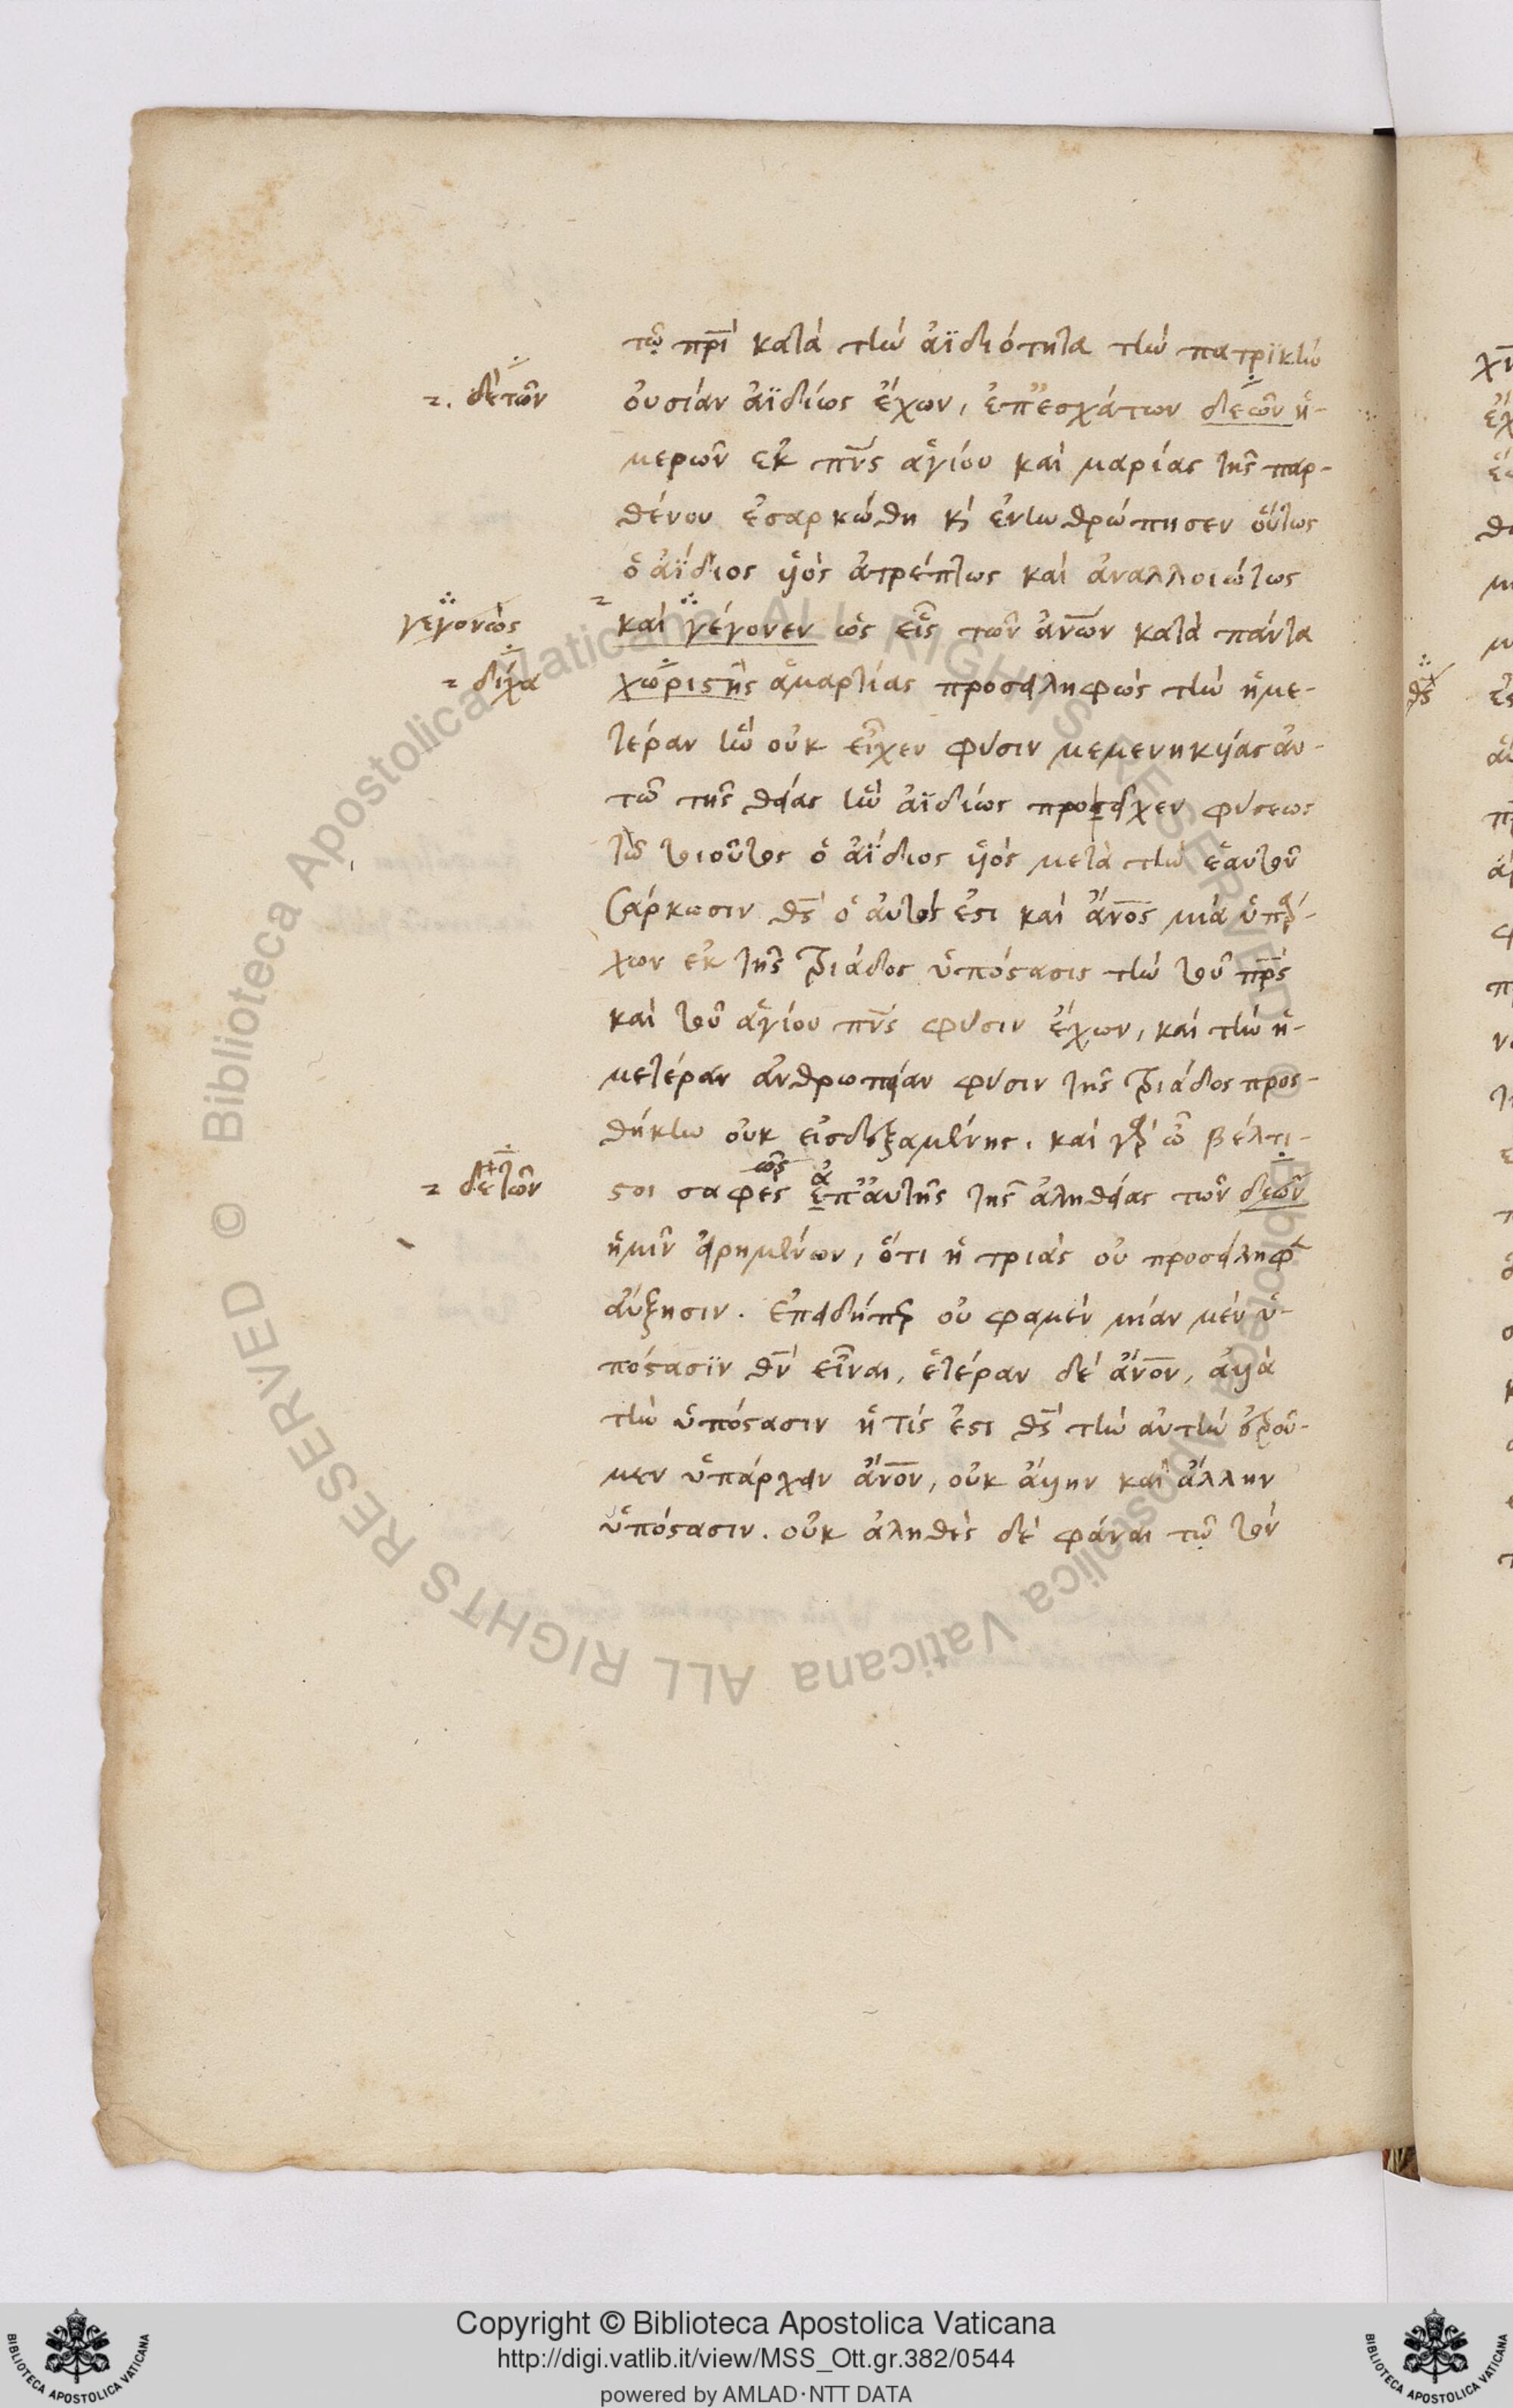 τῷ πρι κατὰ τὴν ἀϊδιότητα τὴν πατρϊκὴν
2. δὲ τῶν
οὐσίαν ἀϊδίως ἔχων, ἐπ' ἐσχάτων δὲ ὧν ἡ-
μερῶν ἐκ πνς ἁγίου καὶ μαρίας τῆς παρ-
θένου ἐσαρκώθη κ ἐνηνθρώπησεν οὕτως
ὁ ἀΐδιος υἱὸς ἀτρέπτως καὶ ἀναλλοιώτως
γεγονὼς
καὶ γέγονεν ὡς εἷς τῶν ἀνων κατὰ πάντα
2 δίχα
χωρὶς τῆς ἁμαρτίας προσειληφὼς τὴν ἡμε-
τέραν ἣν οὐκ εἶχεν φύσιν μεμενηκυίας αὐ-
τῶ τῆς θείας ἣν ἀϊδίως προεῖχεν φύσεως
τοιοῦτος ὁ ἀΐδιος υἱὸς μετὰ τὴν ἑαυτοῦ
σάρκωσιν θς ὁ αὐτός ἐστι καὶ ἄνος μία ὑπάρ-
χων ἐκ τῆς τριάδος ὑπόστασις τὴν τοῦ πρς
καὶ τοῦ ἁγίου πνς φύσιν ἔχων, καὶ τὴν ἡ-
μετέραν ἀνθρωπείαν φύσιν τῆς τριάδος προς-
θήκην οὐκ εἰσδεξαμένης. καὶ γὰρ ὦ βέλτι-
2 δὲ τῶν
στοι σαφὲς ῶς ἐπ' ἀ αὐτῆς τῆς ἀληθείας τῶν δὲ ὧν
ἡμῖν εἰρημένων, ὅτι ἡ τριὰς οὐ προσείληφ
αὔξησιν. ἐπειδήπερ οὐ φαμὲν μίαν μὲν ὑ-
πόστασϊν θν εἶναι, ἑτέραν δὲ ἄνον, ἀλλὰ
τὴν ὑπόστασιν ἥ τίς ἐστι θς τὴν αὐτὴν εὑροῦ-
μεν ὑπάρχειν ἄνον, οὐκ ἄλλην καὶ ἄλλην
ὑπόστασιν. οὐκ ἀληθὲς δὲ φάναι τῷ τὸν
Copyright © Biblioteca Apostolica Vaticana
http://digi.vatlib.it/view/MSS_Ott.gr.382/0544
powered by AMLAD·NTT DATA
BIBLIOTECA APOSTOLICA VATICANA
BIBLIOTECA APOSTOLICA VATICANA
© Biblioteca Apostolica Vaticana ALL RIGHTS RESERVED © Biblioteca Apostolica Vaticana ALL RIGHTS RESERVED